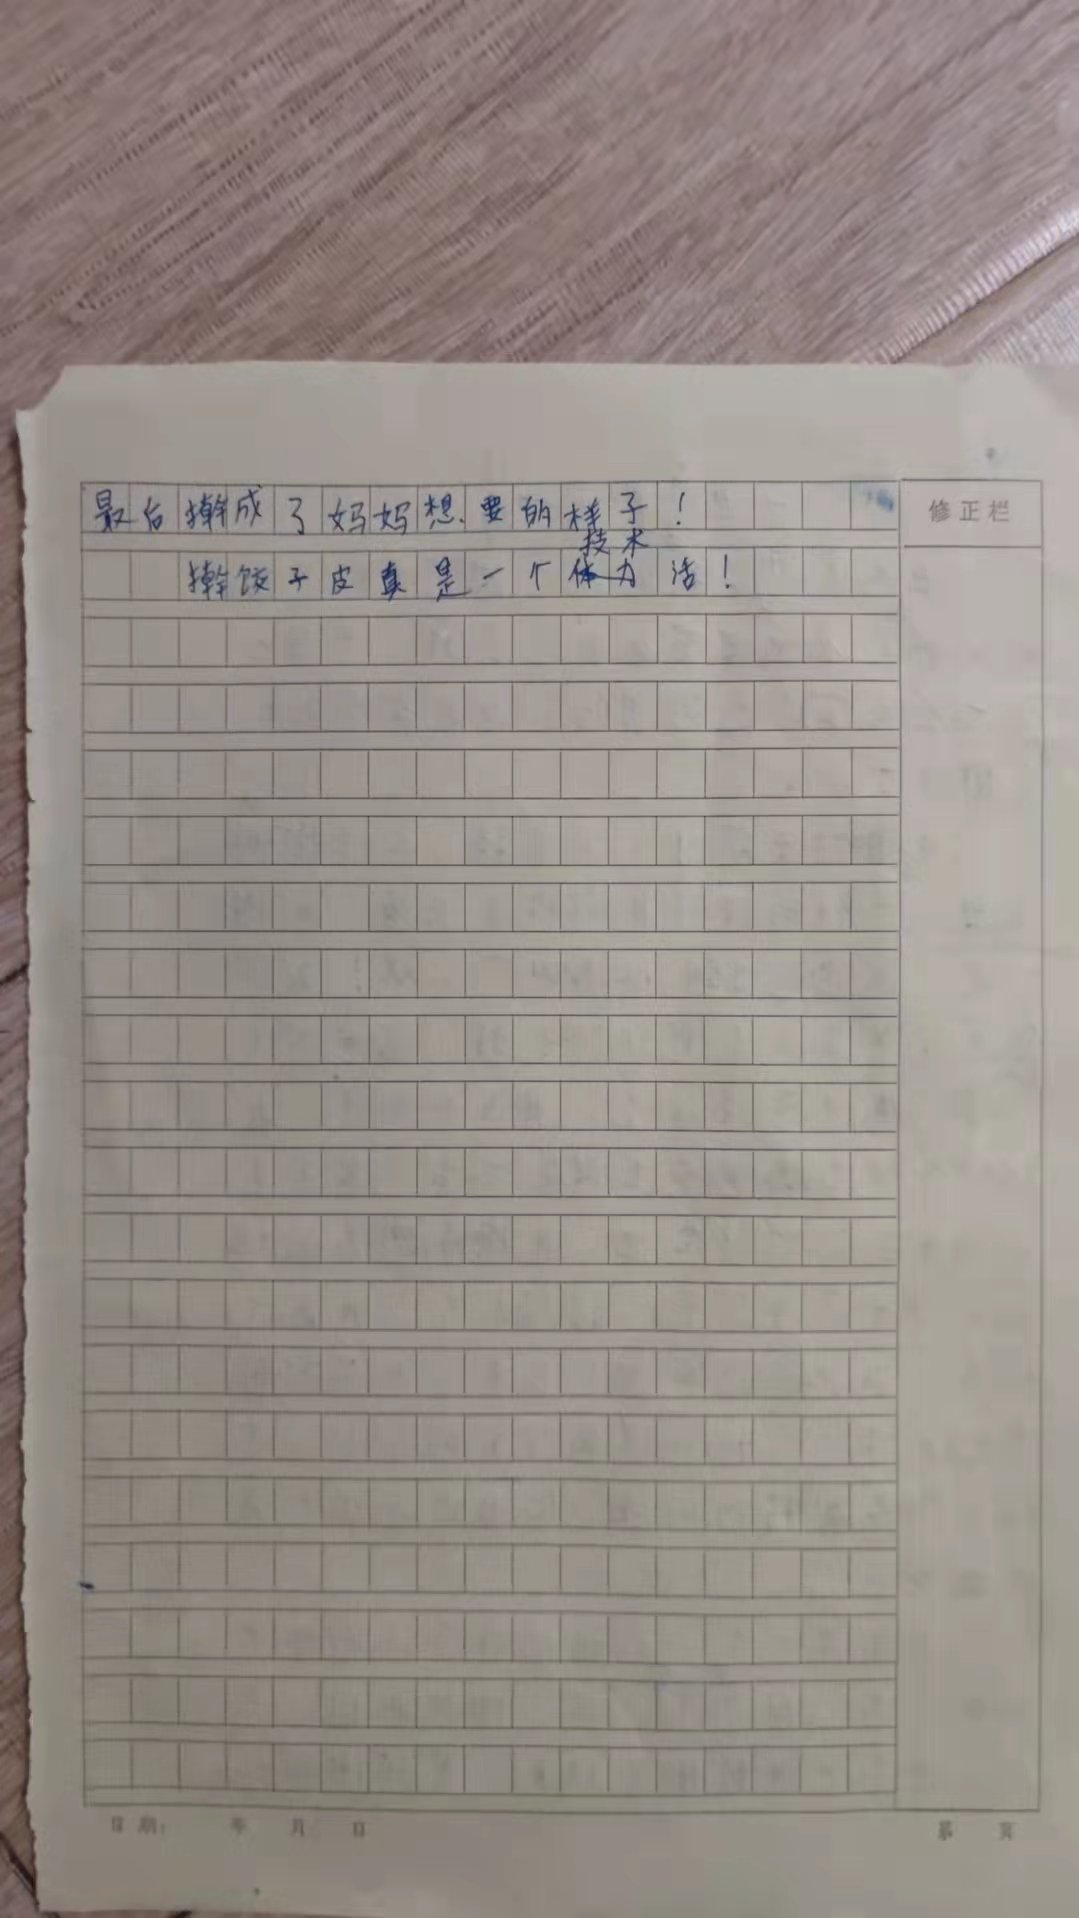 最后擀成了妈妈想要的样子！
修正栏
技术
擀饺子皮真是一个体力活！
日期： 年 月 日
第 页